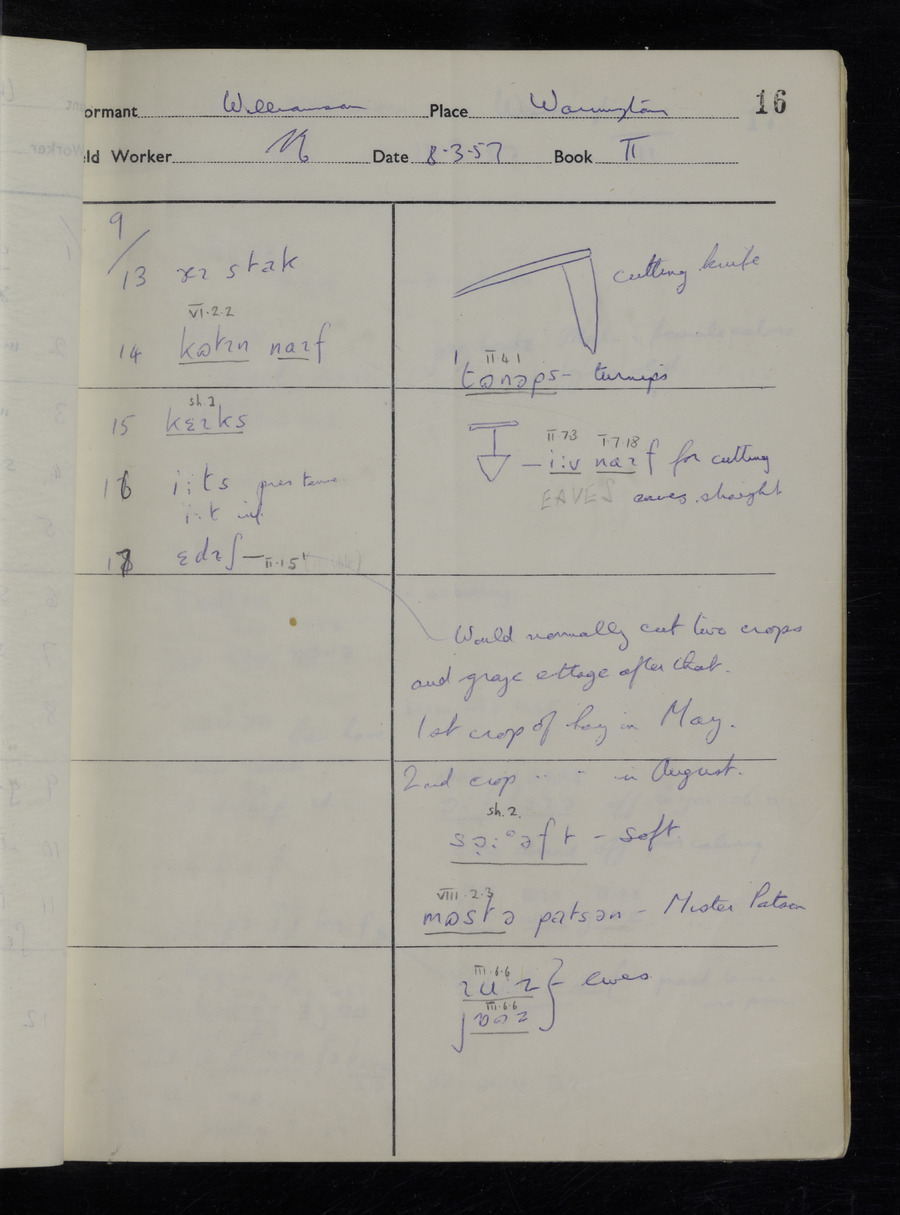 ormant Williamson Place Warmington 16
ld Worker Date 8·3·57 Book II
9/
13 stak
VI·2·2
14
cutting knife
II 4 1
tɷnəps – turnips
sh. 2
15 kɛɪks
16 i:ts pres tense
i:t inf.
II·7 3 I·7·18
– i:v naɪf for cutting
EAVES eaves straight
17 ɛdɪʃ – II·1·5
Would normally cut two crops
and graze ettage after that.
1st crop of hay in May.
2nd crop ·· ·· in August.
sh. 2.
– soft
VIII·2·3
mɷstə patsən – Mister Patson
III·6·6
} ewes
III·6·6